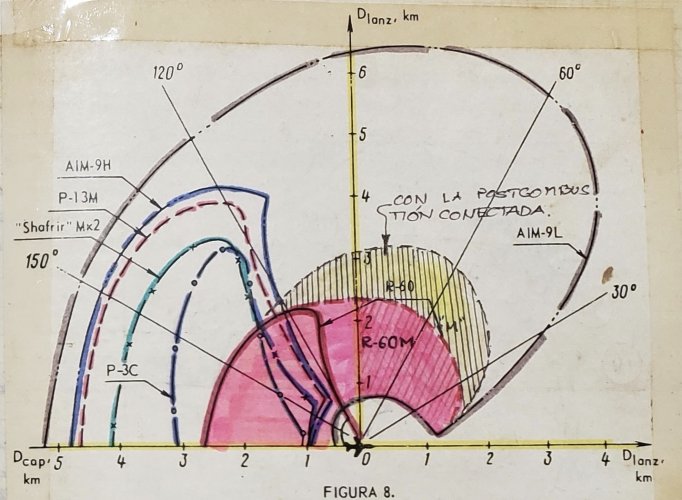 Dlanz, km
6
5
4
3
2
1
120°
60°
AIM-9H
P-13M
"Shafrir" Mx2
150°
CON LA POSTCOMBUS
TIÓN CONECTADA.
AIM-9L
30°
R-60
"M"
R-60M
P-3C
Dcap, km
5 4 3 2 1 0 1 2 3 4
Dlanz, km
FIGURA 8.